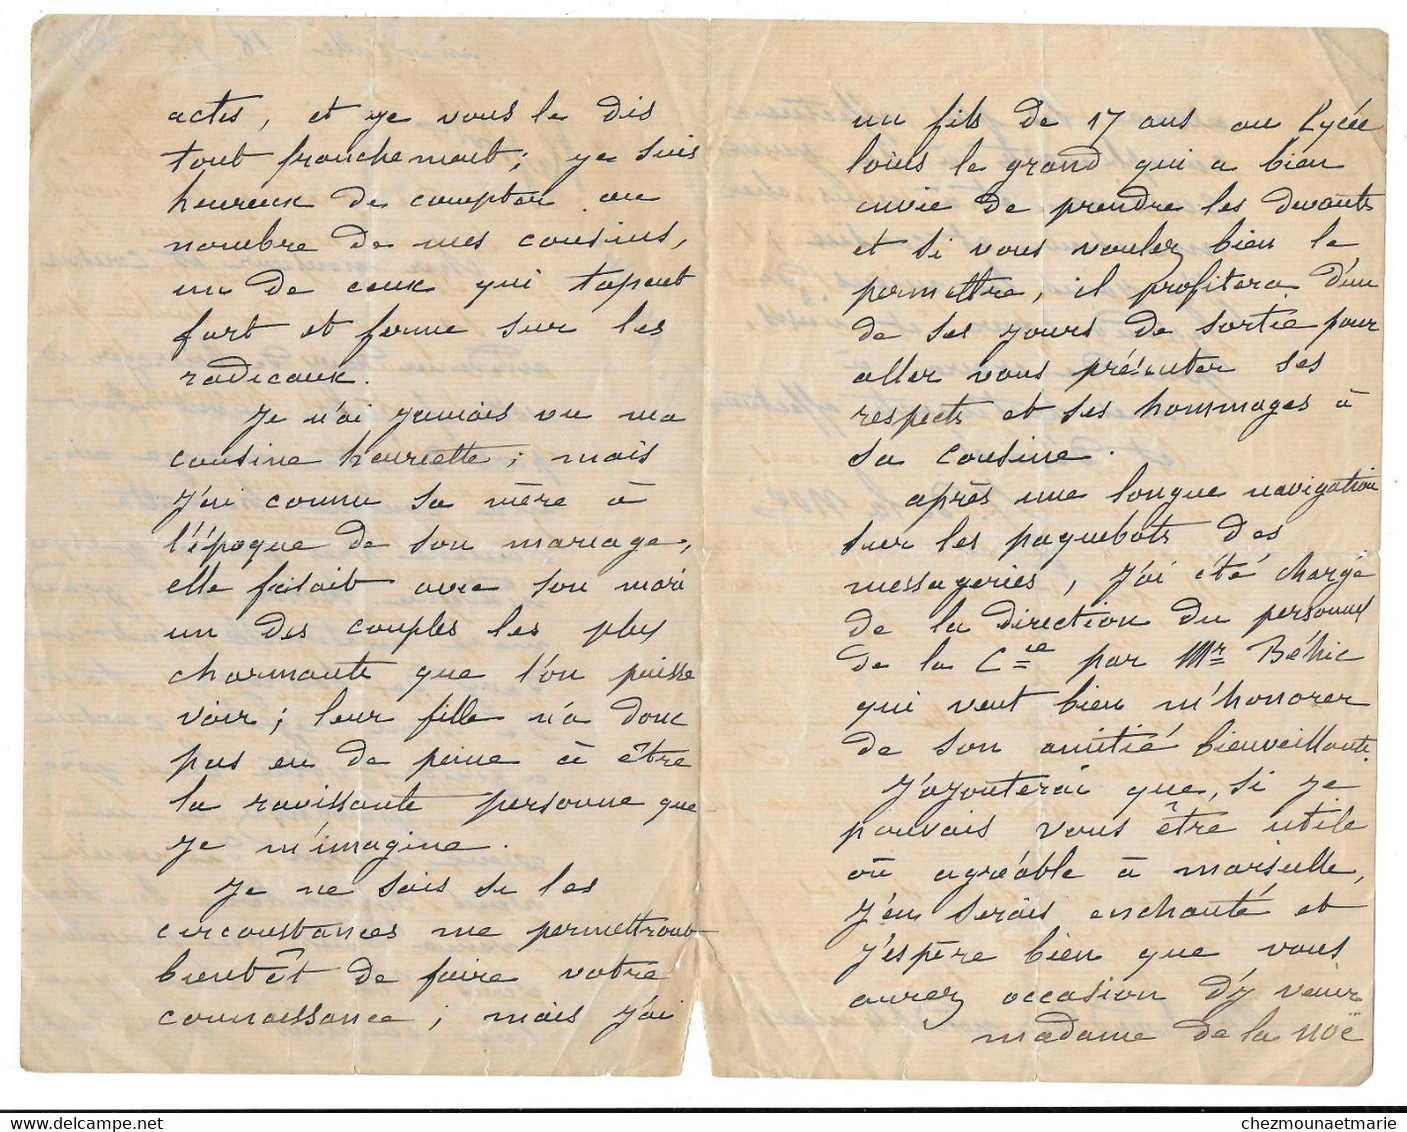 actes, et je vous le dis
tout franchement; je suis
heureux de compter au
nombre de mes cousins,
un de ceux qui tapent
fort et ferme sur les
radicaux.
Je n'ai jamais vu ma
cousine henriette; mais
j'ai connu sa mère à
l'époque de son mariage,
elle faisait avec son mari
un des couples les plus
charmants que l'on puisse
voir; leur fille n'a donc
pas eu de peine à être
la ravissante personne que
je m'imagine.
Je ne sais si les
circonstances me permettront
bientôt de faire votre
connaissance; mais j'ai
un fils de 17 ans au Lycée
louis le grand qui a bien
envie de prendre les devants
et si vous voulez bien le
permettre, il profitera d'un
de ses jours de sortie pour
aller vous présenter ses
respects et ses hommages à
sa cousine.
après une longue navigation
sur les paquebots des
messageries, j'ai été chargé
de la direction du personnel
de la Cie par Mr Béhic
qui veut bien m'honorer
de son amitié bienveillante.
J'ajouterai que, si je
pouvais vous être utile
où agréable à marseille,
j'en serais enchanté et
j'espère bien que vous
aurez occasion d'y venir
madame de la Noë
chezmounaetmarie